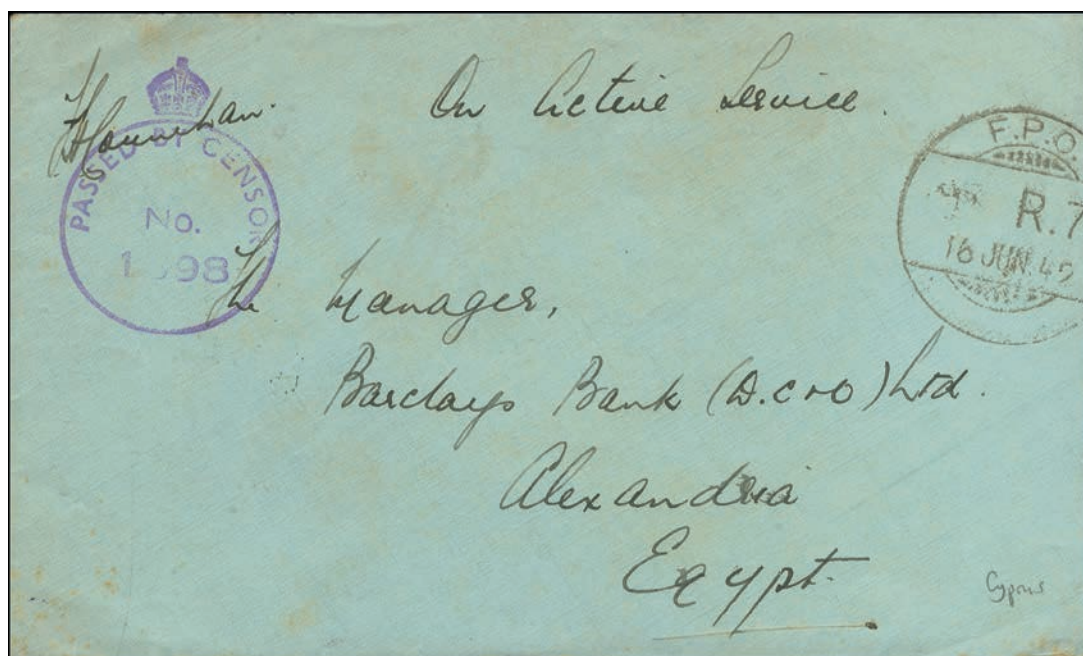 On Active Service.
PASSED BY CENSOR
No.
F.P.O.
R.7
16 JUN. 42
The Manager,
Barclays Bank (D.C+O) Ltd.
Alexandria
Egypt.
Cyprus